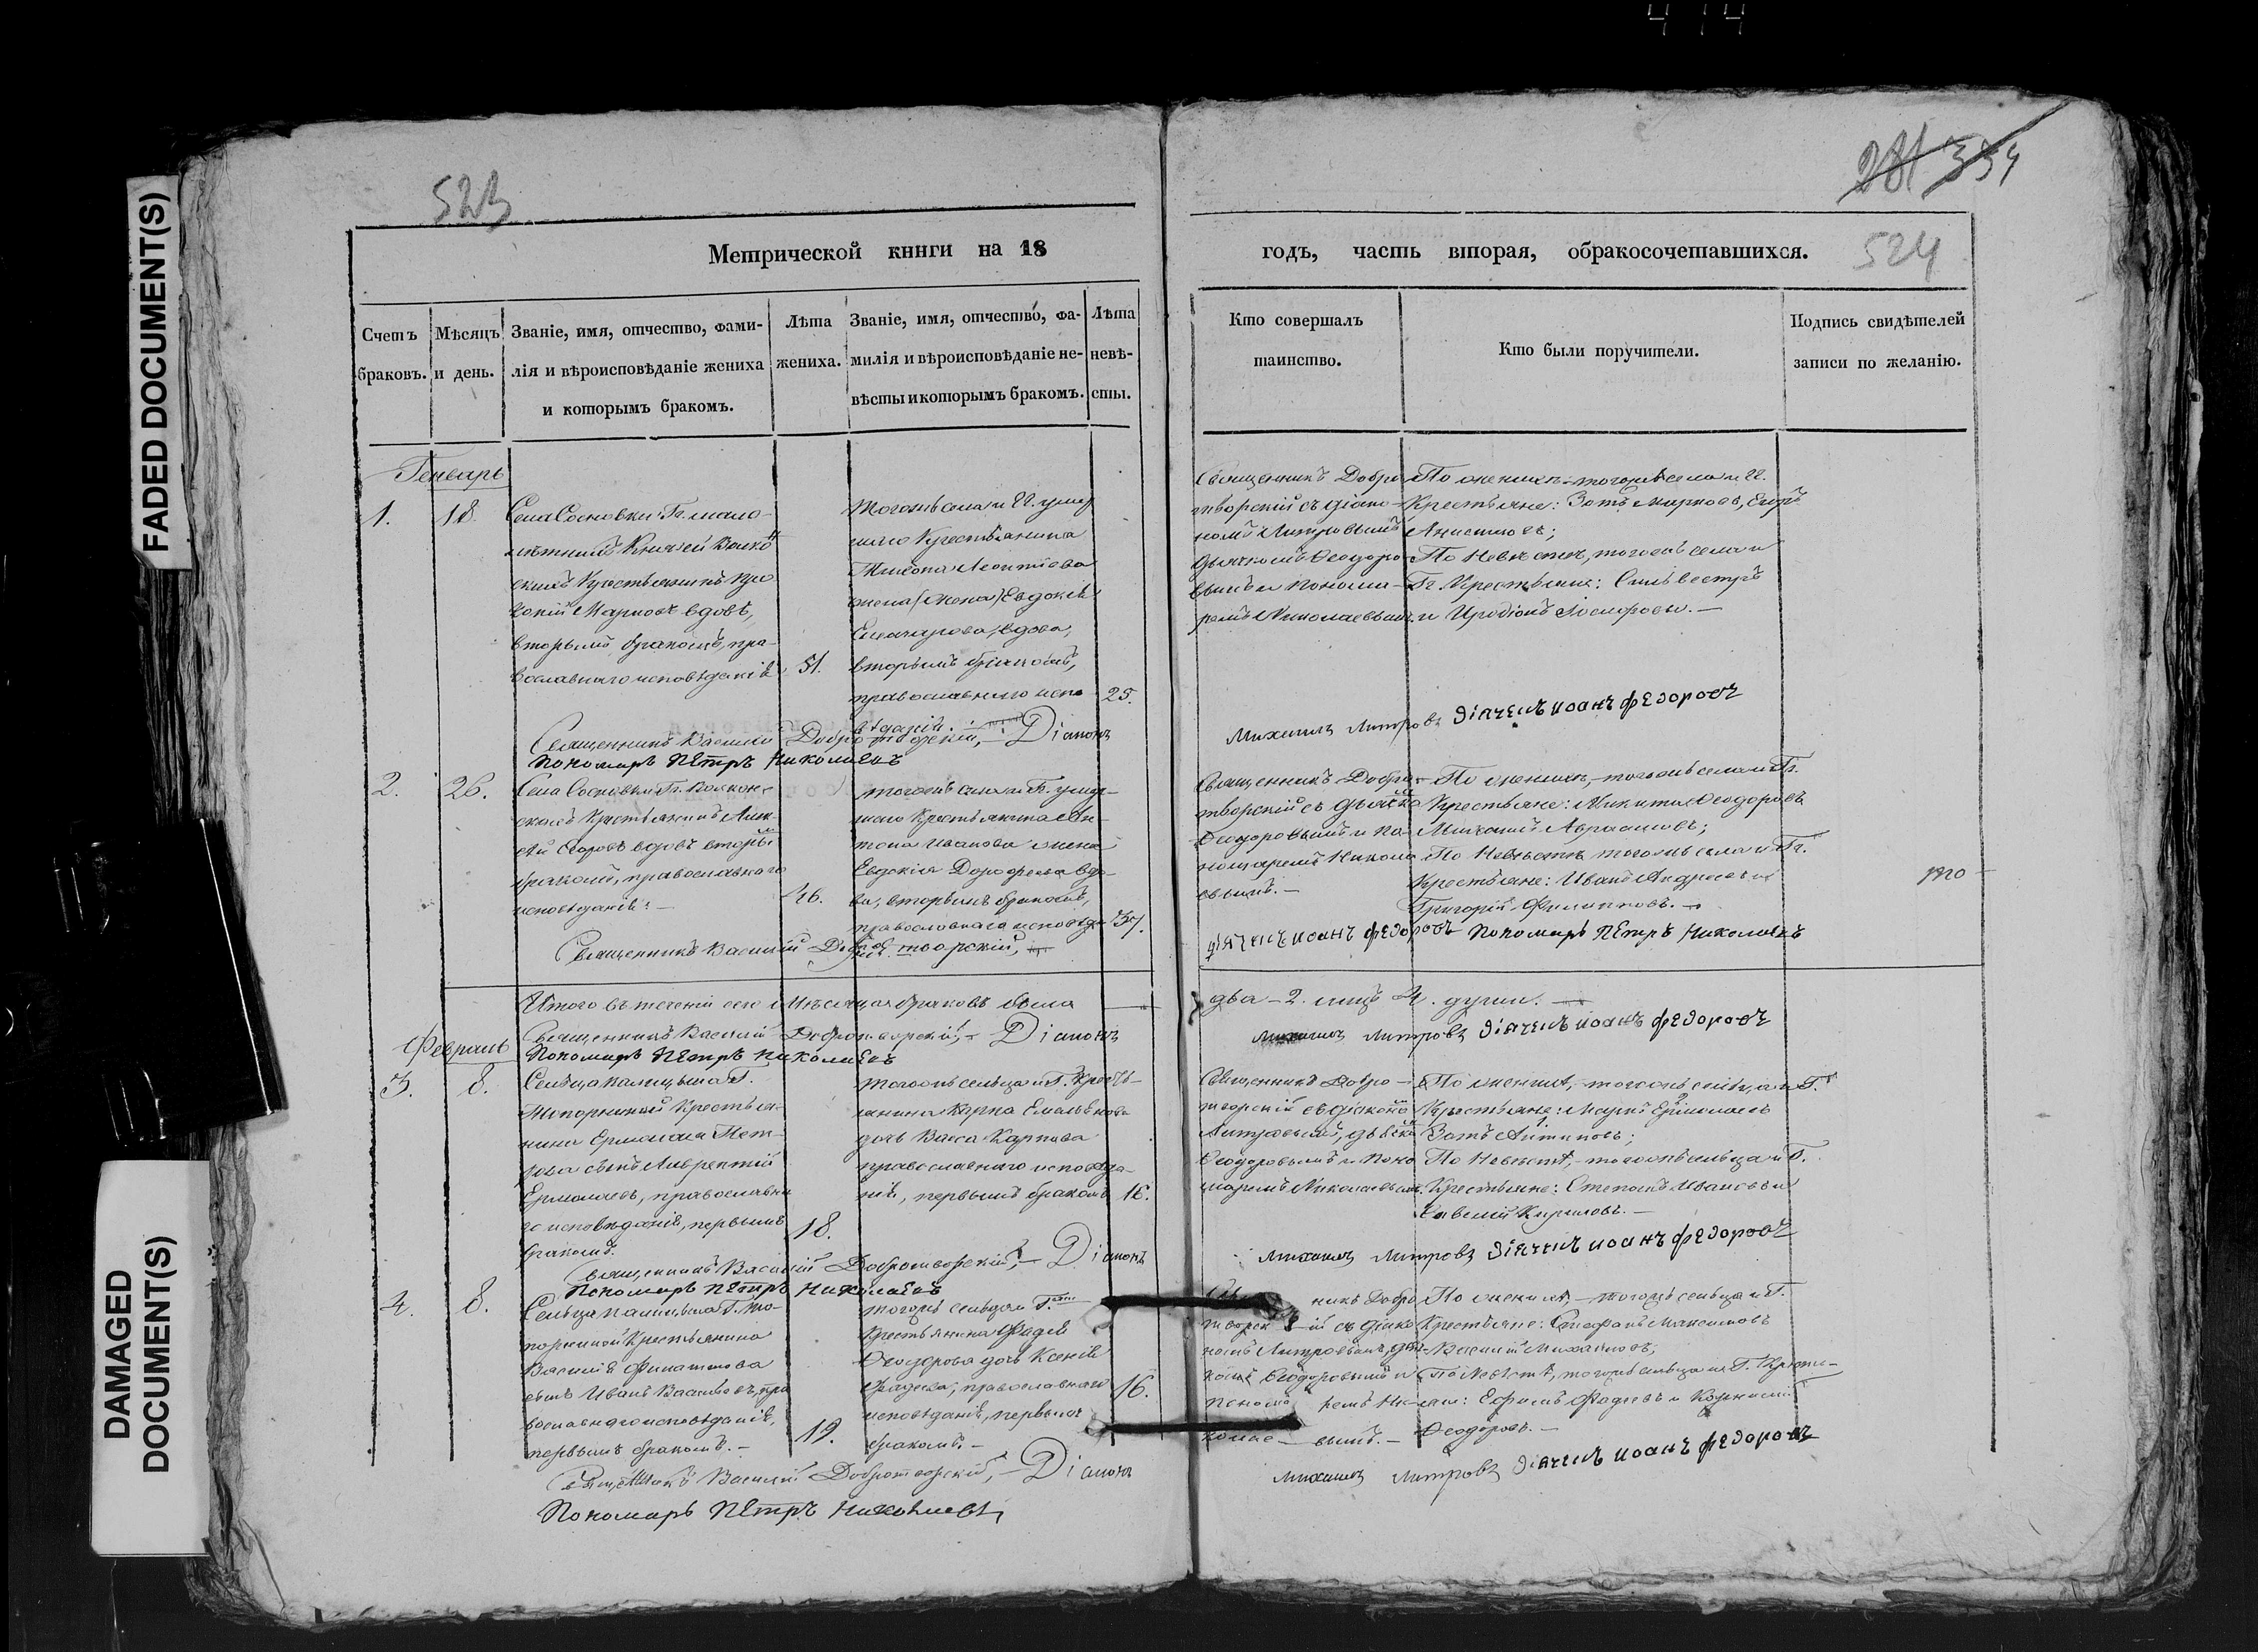 414
FADED DOCUMENT(S)
DAMAGED
DOCUMENT(S)
523
Метрической книги на 18
Счетъ
браковъ.
Мѣсяцъ
и день.
Званіе, имя, отчество, фами-
лія и вѣроисповѣданіе жениха
и которымъ бракомъ.
Лѣта
жениха.
Званіе, имя, отчество, фа-
милія и вѣроисповѣданіе не-
вѣсты и которымъ бракомъ.
Лѣта
невѣ-
сты.
Генварь
1.
18.
Села Сосновки Гг. мало-
лѣтнихъ Князей Волкон
скихъ Крестьянинъ
Марковъ вдовъ,
вторымъ бракомъ, пра-
вославнаго исповѣданія
51.
Тогожъ села и Гг. умер
шаго Крестьянина
Леонтіева
жена Евдокія
вдова,
вторымъ бракомъ,
православнаго испо
вѣданія.
25.
Священникъ Василій Добротворскій, Діаконъ
Пономарь Петръ Николаевъ
2.
26.
Села Сосновки Гг. Волкон-
скихъ Крестьянинъ Алек-
сѣй Егоровъ вдовъ вторымъ
бракомъ, православнаго
исповѣданія. —
46.
тогожъ села и Гг. умер-
шаго Крестьянина
Иванова жена
Евдокія Дорофеева вдо-
ва, вторымъ бракомъ,
православнаго исповѣда
37.
Священникъ Василій Добротворскій,
Итого въ теченіи сего Мѣсяца браковъ было
Священникъ Василій Добротворскій, — Діаконъ
Февраль
Пономарь Петръ Николаевъ
3.
8.
Сельца Г.
Топорниной Крестья-
нина Ермолая Пет-
рова сынъ Лаврентій
Ермолаевъ, православна
го исповѣданія, первымъ
бракомъ.
18.
тогожъ сельца и Г. Кресть-
янина Карпа Емельянова
дочь Васса Карпова
православнаго исповѣда-
нія, первымъ бракомъ
16.
Священникъ Василій Добротворскій, — Діаконъ
Пономарь Петръ Николаевъ
4.
8.
Сельца Г. То-
порниной Крестьянина
Василія Филатова
сынъ Иванъ Васильевъ, пра
вославнаго исповѣданія,
первымъ бракомъ. —
19.
тогожъ сельца и Г.
Крестьянина Фадея
Ѳеодорова дочь Ксенія
Фадеева, православнаго
исповѣданія, первымъ
бракомъ. —
16.
Священникъ Василій Добротворскій, — Діаконъ
Пономарь Петръ Николаевъ
годъ, часть вторая, о бракосочетавшихся.
524
Кто совершалъ
таинство.
Кто были поручители.
Подпись свидѣтелей
записи по желанію.
Священникъ Добро
творскій съ діако-
номъ Митровымъ
дьячкомъ Ѳеодоро
вымъ и понома-
ремъ Николаевымъ.
По женихѣ — тогожъ села и Гг.
Крестьяне: Зотъ Марковъ, Егоръ
По Невѣстѣ, тогожъ села и
Гг. Крестьяне: Сильвестръ
и Иродіонъ Іосифовы. —
Михаилъ Митровъ Дьячекъ Иоанъ Федоровъ
Священникъ Добро-
творскій съ дьячко
Ѳеодоровымъ и по-
номаремъ Никола
евымъ. —
По женихѣ, — тогожъ села и Гг.
Крестьяне: Никита Ѳеодоровъ
Авраамовъ;
По Невѣстѣ тогожъ села и Гг.
Крестьяне: Иванъ Андреевъ и
Григорій Филипповъ. —
Дьячекъ Иоанъ Федоровъ Пономарь Петръ Николаевъ
два — 2. лицъ 4. души. —
Михаилъ Митровъ Дьячекъ Иоанъ Федоровъ
Священникъ Добро-
творскій съ діакономъ
Митровымъ, дьячко
Ѳеодоровымъ и поно
маремъ Николаевымъ.
По женихѣ, — тогожъ сельца и Г.
Крестьяне: Маркъ Ермолаевъ
Зотъ Антиповъ;
По Невѣстѣ, — тогожъ сельца и Г.
Крестьяне: Степанъ Ивановъ и
Савелій Кириловъ. —
Михаилъ Митровъ Дьячекъ Иоанъ Федоровъ
никъ Добро
творскій съ діако
номъ Митровымъ, дья-
Ѳеодоровымъ и
понома ремъ Ни-
колае- вымъ. —
По женихѣ, — тогожъ сельца и Г.
Крестьяне: Стефанъ Максимовъ
Василій Михайловъ;
По Невѣстѣ, тогожъ сельца и Г. Кресть-
яне: Ефимъ Фадеевъ и Корнилій
Ѳеодоровъ. —
Михаилъ Митровъ Дьячекъ Иоанъ Федоровъ